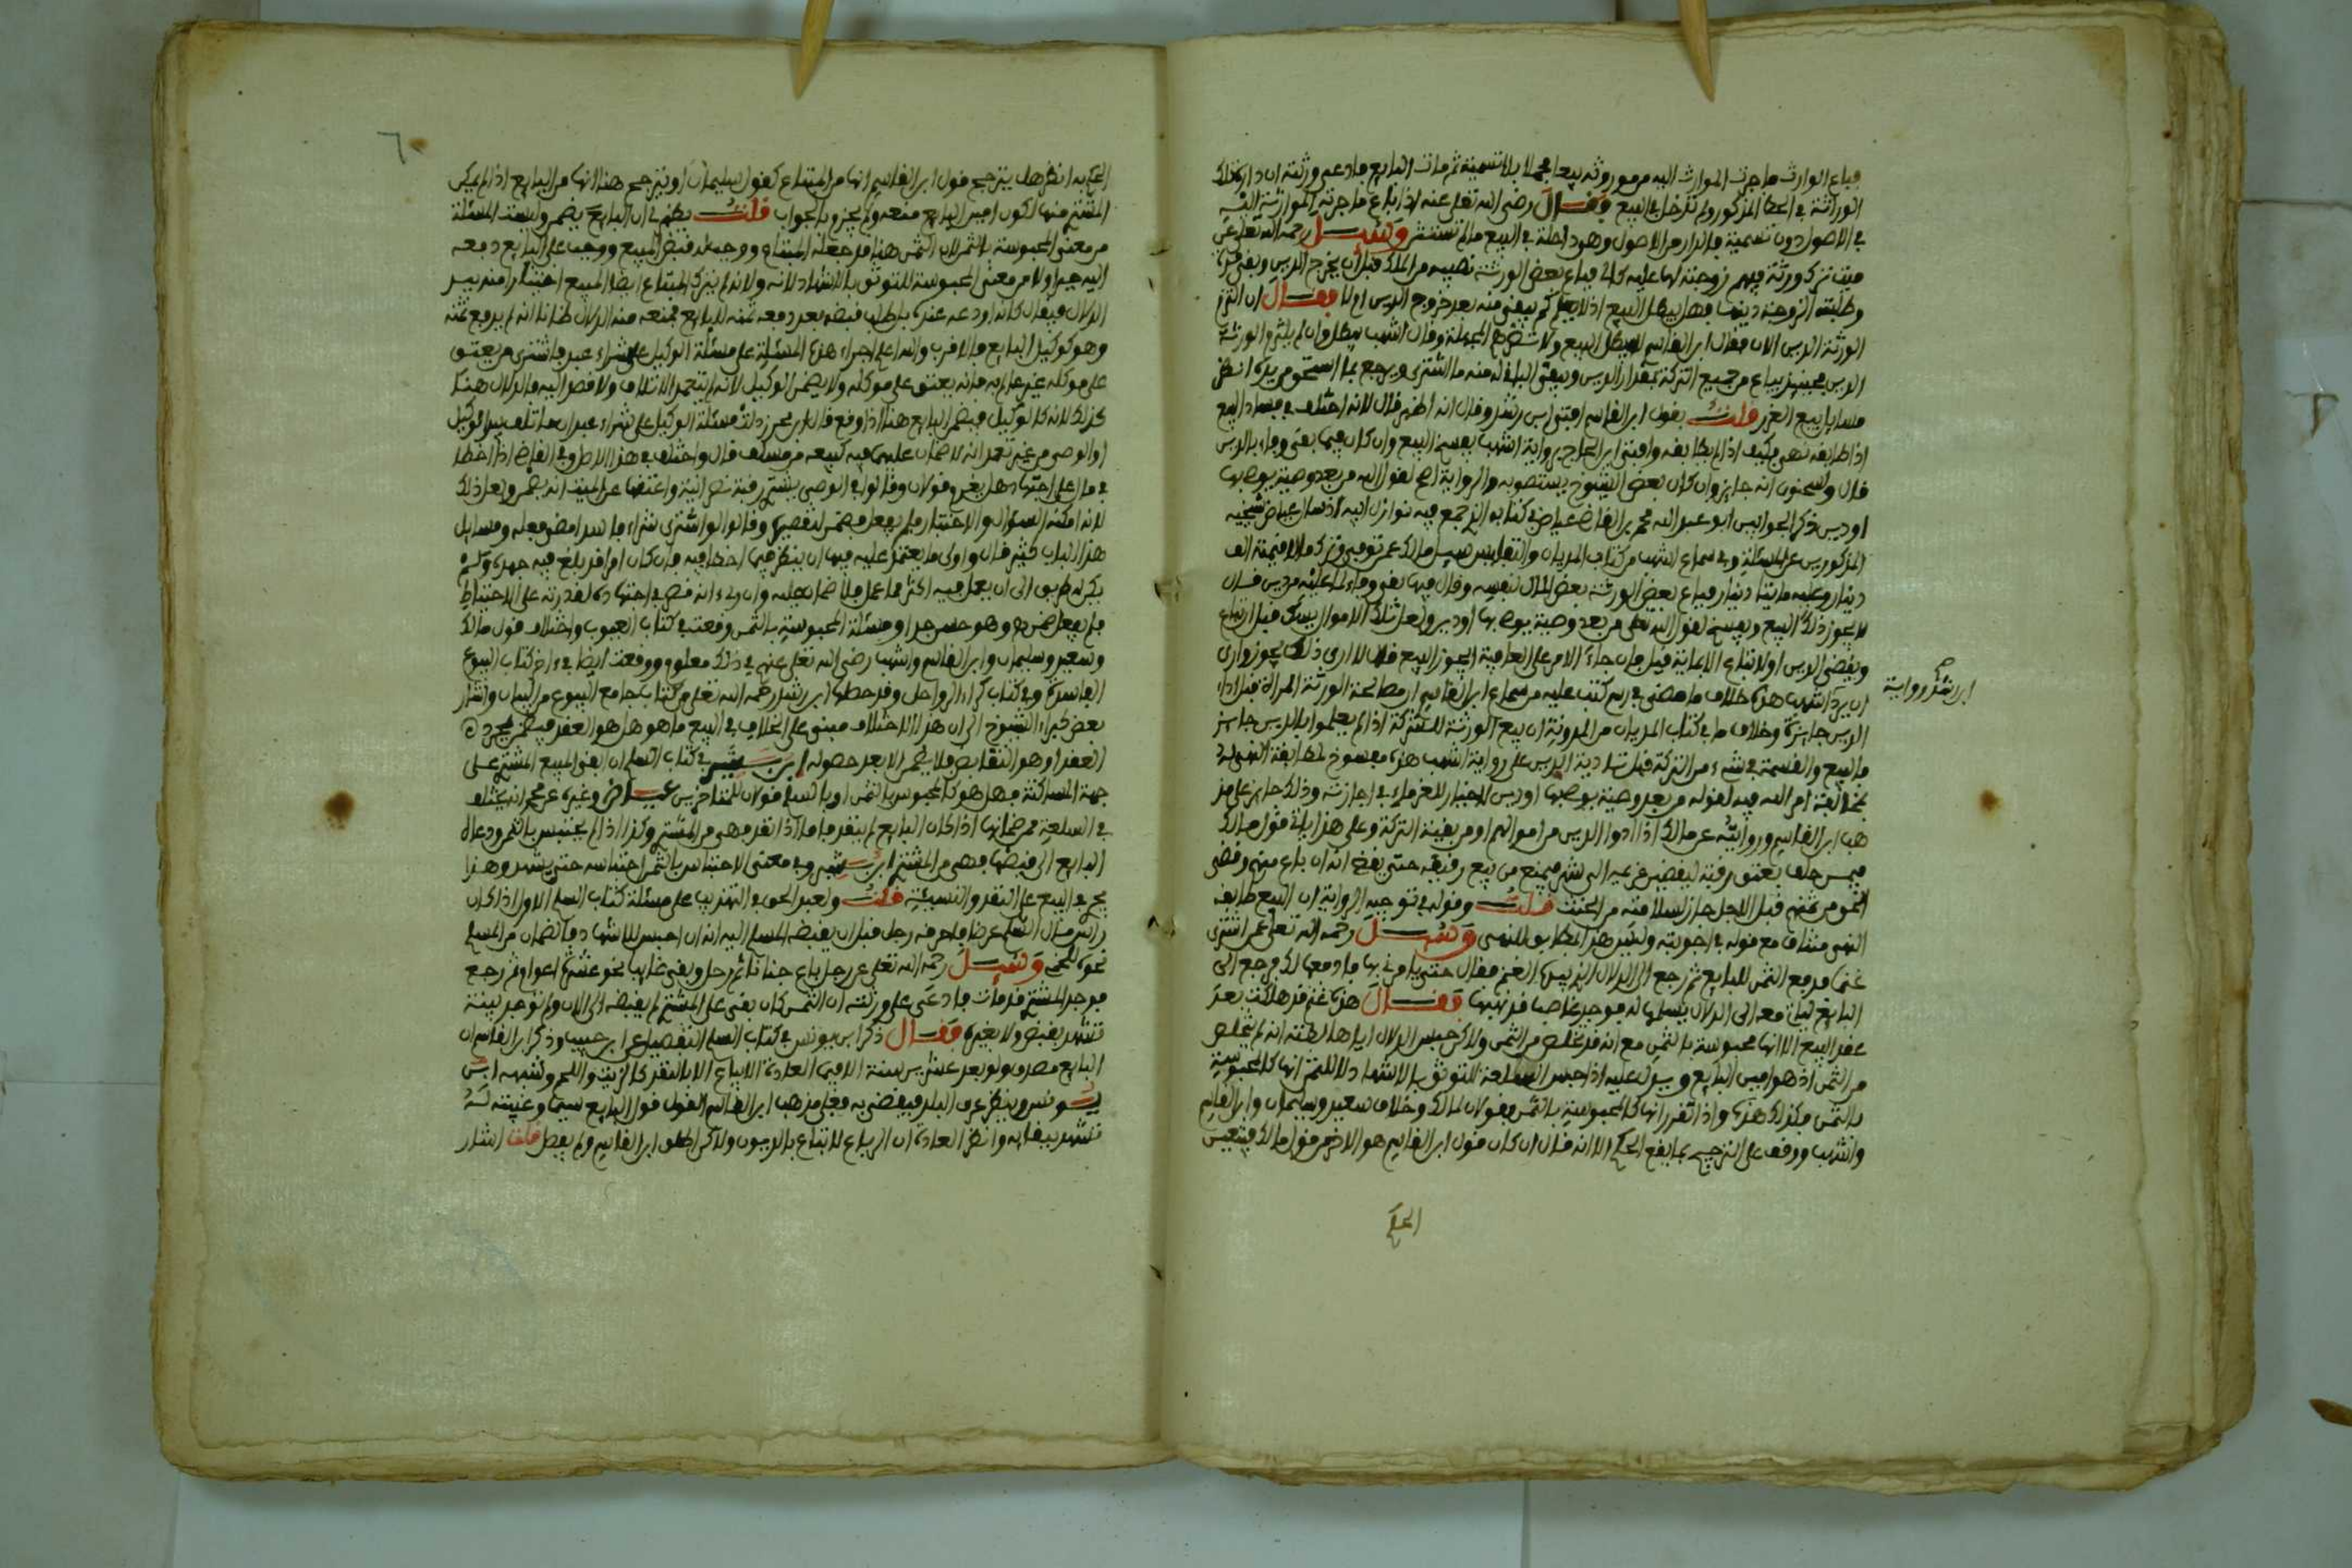 فباع الوارث ما جرت الموارث اليه من موروثه بيعا مجملا بلا تسمية ثم مات البايع فادعى ورثته ان دار كذلك
الوراثة في الحظ المذكور ولم تدخل في البيع فقال رضي الله تعلى عنه اذا باع ما جرته الموارثة اليه
في الاصول دون تسمية فالدار من الاصول وهي داخلة في البيع ما لم تستثن وسئل رحمه الله تعلى عن
ميت ترك ورثة فيهم زوجته لها عليه كالئ فباع بعض الورثة نصيبه من الملك قبل ان يخرج الدين وبقي
وطلبت الزوجة دينها فهل يبطل البيع اذ لا يعلم كم يبقى منه بعد خروج الدين او لا فقال ان التزم
الورثة الدين الان فقال ابن القاسم لا يبطل البيع ولا تضر الجملة وقال اشهب يبطل وان لم يلتزم الورثة
الدين فحينئذ يباع من جميع التركة بمقدار الدين ويبقى الباقي له منه ما اشترى ويرجع بما استحق من يده انظر
مسايل بيع الغرر قلت بقول ابن القاسم افتى ابن رشد وقال انه اظهر قال لانه اختلف في فساد البيع
اذا طابقه نهي فكيف اذا لم يطابقه وافتى ابن الحاج برواية اشهب بفسخ البيع وان كان فيما بقي وفاء بالدين
قال ولسحنون انه جايز وان كان بعض الشيوخ يستصوبه والرواية اصح لقول الله من بعد وصية يوصى بها
او دين ذكر الجوابين ابو عبد الله محمد بن القاضي عياض في كتابه الذي جمع فيه نوازل ابيه اذ سال عياض شيخيه
المذكورين عن المسئلة وفي سماع اشهب من كتاب المديان والتفليس سيل مالك عمن توفي وترك مالا قيمته الف
دينار وعليه مايتا دينار فباع بعض الورثة بعض المال لنفسه وقال فيما بقي وفاء لما عليه من دين قال
لا يجوز ذلك البيع ويفسخ لقول الله تعلى من بعد وصية يوصى بها او دين ولعل تلك الاموال يتمسك قبل ان تباع
ويقضى الدين او لا تباع الا بمائة قيل فان جاء الامر على العافية ايجوز البيع قال لا ارى ذلك يجوز وارى
ان يرد اشهب هذه خلاف ما مضى في رسم كتب عليه من سماع ابن القاسم ان مصالحة الورثة المراة قبل اداء
ابن رشد ورواية
الدين جايزة وخلاف ما في كتاب المديان من المدونة ان بيع الورثة للتركة اذا لم يعلموا بالدين جايز
فالبيع والقسمة في شيء من التركة قبل تادية الدين على رواية اشهب هذه مفسوخ لمطابقة النهي له
بمخالفة امر الله فيه لقوله من بعد وصية يوصى بها او دين لا خيار للغرماء في اجازته وذلك جايز على مذ
هب ابن القاسم وروايته عن مالك اذا ادوا الدين من اموالهم او من بقية التركة وعلى هذا ياتي قول مالك
فيمن حلف بعتق رقيقه ليقضين غريمه الى شهر فيمنع من بيع رقيقه حتى يقضي انه ان باع منهم وقضى
الحق من ثمنهم قبل الاجل جاز لسلامته من الحنث قلت وقوله في توجيه الرواية ان البيع طابقه
النهي مناف مع قوله في اجوبته ولكن هذا المطابق للنهي وسئل رحمه الله تعلى عمن اشترى
غنما فدفع الثمن للبايع ثم رجع الى الدلال الذي بيده الغنم فقال حتى يامرني بها فادفعها لك فرجع الى
البايع لياتي معه الى الدلال يسلمها له فوجد غاصبا قد نهبها فقال هذه غنم قد هلكت بعد
عقد البيع الا انها محبوسة بالثمن مع انه قد تخلص من الثمن ولاكن حبس الدلال اياها لظنته انه لم يتخلص
من الثمن اذ هو امين البايع ويدل عليه اذا حبس السلعة للتوثق بالاشهاد لا للثمن انها كالمحبوسة
بالثمن فكذلك هذه واذا تقرر انها كالمحبوسة بالثمن فقولان لمالك وخلاف سعيد وسليمان وابن القاسم
واشهب ووقف على الترجيح بما يقع الحكم الا انه قال ان كان قول ابن القاسم هو الاخير من قول مالك فيتعين
الحكم
الحكم به انظر هل يترجح قول ابن القاسم انها من المبتاع كقول سليمان او يترجح هنا انها من البايع اذ لم يمكن
المشتري منها لكون امين البايع منعه ولم يجزم بالجواب قلت يظهر لي ان البايع يضمن وليست المسئلة
من معنى المحبوسة بالثمن لان الثمن هنا قد جعله المبتاع ووجب له قبض المبيع ووجب على البايع دفعه
اليه جبرا ولا من معنى المحبوسة للتوثق بالاشهاد لانه ولانه لم يترك المبتاع ايضا المبيع اختيارا منه بيد
الدلال فيقال كانه اودعه عنده بل طلب قبضه بعد دفعه ثمنه للبايع فمنعه منه الدلال ظانا انه لم يدفع ثمنه
وهو كوكيل البايع فالاقرب والله اعلم اجراء هذه المسئلة على مسئلة الوكيل على شراء عبد فاشترى من يعتق
على موكله غير عالم به فانه يعتق على موكله ولا يضمن الوكيل لانه لم يتعمد الاتلاف ولا قصد اليه فالدلال هنا
كذلك لانه كالوكيل فيضمن البايع هنا اذا وقع قال ابن محرز دلت مسئلة الوكيل على شراء عبد ان ما تلف بيد الوكيل
او الوصي من غير تعمد انه لا ضمان عليهما فيه كبيعه من مسلف قال واختلف في هذا الاصل وفي القاضي اذا اخطا
في مال على اجتهاد هل يغرم قولان وقالوا في الوصي يشتري رقبة نصرانية واعتقها عن الميت انه يضمن ولعل ذلك
لانه امكنه السؤال والاختبار فلم يفعل فيضمن لتقصيره وقالوا لو اشترى شراء فاسدا مضى فعله ومسايل
هذا الباب كثيرة قال واولى ما يعتمد عليه فيها ان ينظر فيما اخطا فيه فان كان امرا قد بلغ فيه جهده ولم
يكن له طريق الى ان يعمل فيه اكثر مما عمل فلا ضمان عليه وان رءي انه قصر في اجتهاده لقدرته على الاحتياط
فلم يفعل ضمن وهو حسن جدا ومسئلة المحبوسة بالثمن وقعت في كتاب العيوب واختلاف قول مالك
وسعيد وسليمان وابن القاسم واشهب رضي الله تعلى عنهم في ذلك معلوم ووقعت ايضا في ءاخر كتاب البيوع
الفاسدة وفي كتاب كراء الرواحل وقد حصلها ابن رشد رحمه الله تعلى في كتاب جامع البيوع من البيان واشار
بعض كبراء الشيوخ الى ان هذا الاختلاف مبني على الخلاف في البيع ما هو هل هو العقد فيضمن بمجرد
العقد او هو التقابض فلا يضمن الا بعد حصوله ابن بشير في كتاب السلم ان بقي المبيع المشتري على
جهة المساكتة فهل هو كالمحبوس بالثمن او بالتسليم قولان للمتاخرين عياض وغيره عن محمد انه يختلف
في السلعة ممن ضمانها اذا كان البايع لم ينقد واما اذا انقد فهي من المشتري وكذا اذا لم يحتبس بالثمن ودعاه
البايع الى قبضها فهي من المشتري ابن بشير وفي معنى الاحتباس بالثمن احتباسه حتى يشهد وهذا
يجري في البيع على النقد والنسيئة قلت ولعبد الحق في التهذيب على مسئلة كتاب السلم الاول اذا كان
راس مال السلم عرضا فاحرقه رجل قبل ان يقبضه المسلم اليه انه ان احبس للاشهاد فالضمان من المسلم
نحوه للخمي وسئل رحمه الله تعلى عن رجل باع جنانا ثم رحل وبقي غايبا نحو عشرة اعوام ثم رجع
فوجد المشتري قد مات فادعى على ورثته ان الثمن كان بقي على المشتري لم يقبضه الى الان ولم توجد بينة
تشهد بقبض ولا بغيره فقال ذكر ابن يونس في كتاب السلم التفصيل عن ابن حبيب وذكر ابن القاسم ان
البايع مصدق ولو بعد عشرين سنة الا فيما العادة الا يباع الا بالنقد كالزيت واللحم وشبهه ابن
يونس وينظر عرف البلد فيقضى به فعلى مذهب ابن القاسم القول قول البايع سيما وغيبته له
تشهد ببقايه وانظر العادة ان الرباع لا تباع بالديون ولاكن اطلق ابن القاسم ولم يفصل قلت اشار